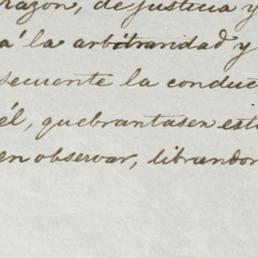 razon, de justicia y
a' la arbitrariedad y
secuente la conduc
él, quebrantasen est
en observar, librandon